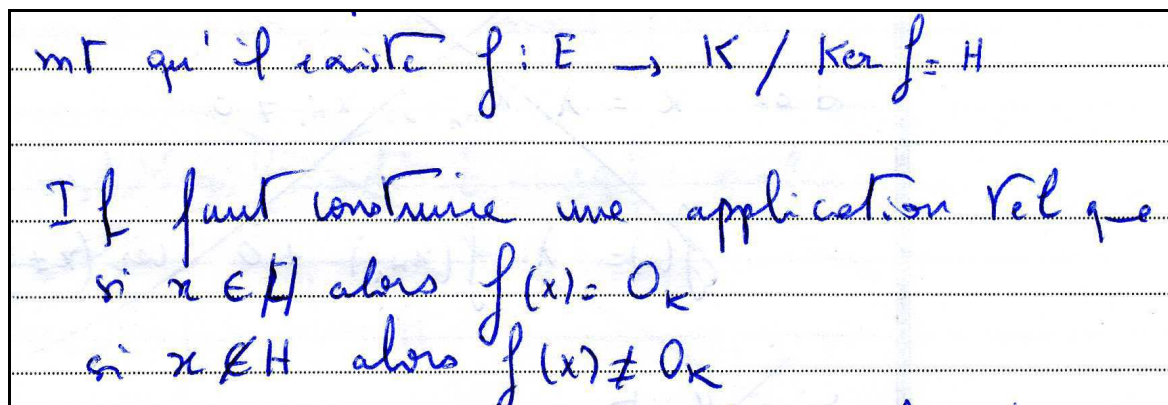 mt qu'il existe f : E → K / Ker f = H
Il faut construire une application tel que
si x ∈ H alors f(x) = 0_K
si x ∉ H alors f(x) ≠ 0_K